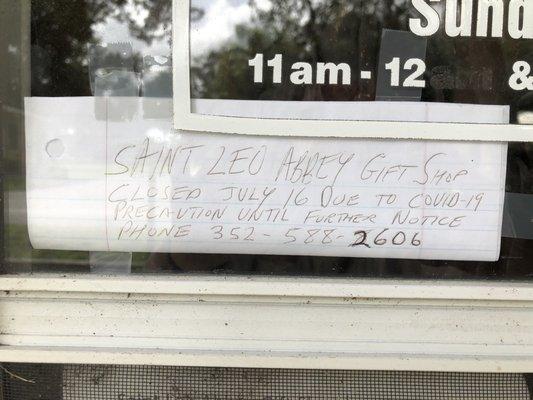 Sund
11am - 12
&
SAINT LEO ABBEY GIFT SHOP
CLOSED JULY 16 DUE TO COVID-19
PRECAUTION UNTIL FURTHER NOTICE
PHONE 352-588-2606